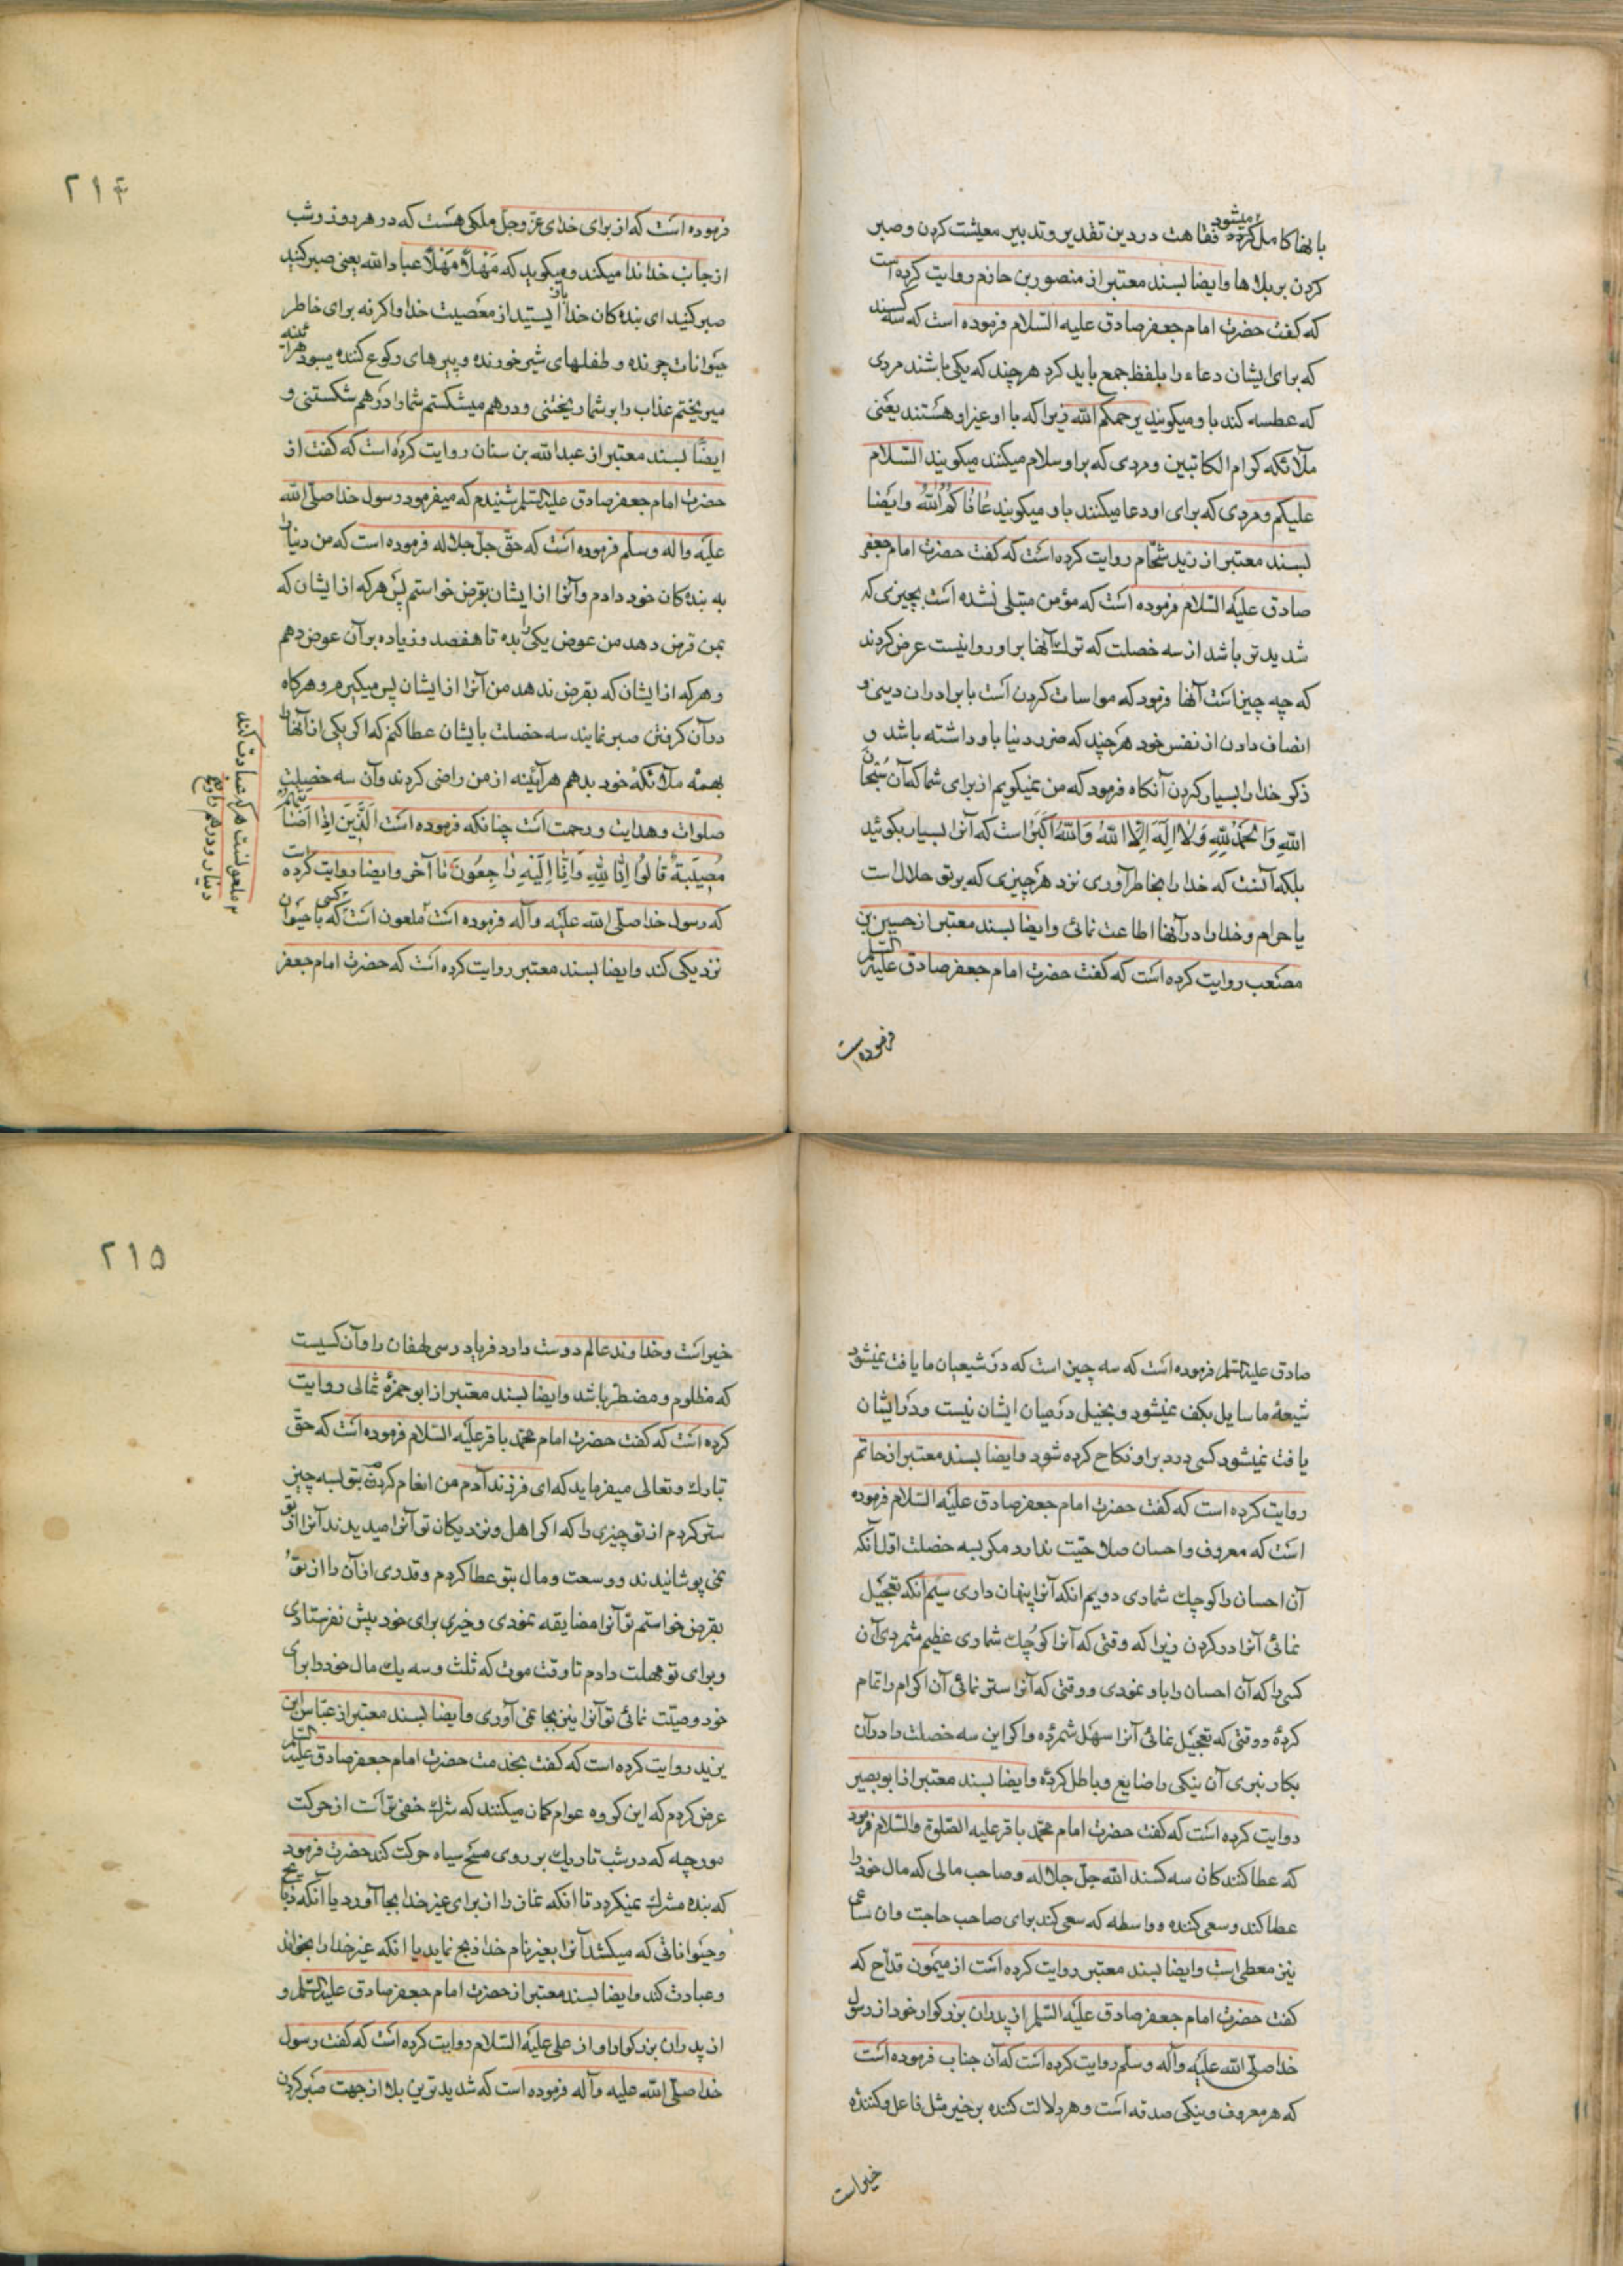 بانها کامل میشود فقاهت در دین تقدیر و تدبیر معیشت کردن و صبر
کردن بر بلاها و ایضا بسند معتبر از منصور بن حازم روایت کرده است
که گفت حضرت امام جعفر صادق علیه السلام فرموده است که سه کسند
که برای ایشان دعاء را بلفظ جمع باید کرد هر چند که یکی باشند مردی
که عطسه کند باو میکویند یرحمکم الله زیرا که با او غیر او هستند یعنی
ملائکه کرام الکاتبین و مردی که بر او سلام میکنند میکویند السلام
علیکم و مردی که برای او دعا میکنند باو میکویند عافاکم الله و ایضا
بسند معتبر از زید شحام روایت کرده است که گفت حضرت امام جعفر
صادق علیه السلام فرموده است که مؤمن مبتلی نشده است بچیزی که
شدیدتر باشد از سه خصلت که ترک آنها بر او روا نیست عرض کردند
که چه چیز است آنها فرمود که مواسات کردن است با برادران دینی و
انصاف دادن از نفس خود هر چند که ضرر دنیا باو داشته باشد و
ذکر خدا را بسیار کردن آنکاه فرمود که من نمیکویم از برای شما که آن سُبْحَانَ
اللهِ وَ الْحَمْدُ لِلّهِ وَ لا اِلَهَ اِلّا اللهُ وَ اللهُ اَکْبَرُ است که آنرا بسیار بکوئید
بلکه آنست که خدا را بخاطر آوری نزد هر چیزی که بر تو حلال است
یا حرام و خدا را در آنها اطاعت نمائی و ایضا بسند معتبر از حسین بن
مصعب روایت کرده است که گفت حضرت امام جعفر صادق علیه السلم
فرموده است
۲۱۴
فرموده است که از برای خدای عزّ و جلّ ملکی هست که در هر روز و شب
از جانب خدا ندا میکند و میکوید که مَهْلًا مَهْلًا عباد الله یعنی صبر کنید
صبر کنید ای بنده کان خدا باز ایستید از معصیت خدا و اکر نه برای خاطر
حیوانات چرنده و طفلهای شیر خورنده و پیرهای رکوع کننده میبود هر آینه
میریختم عذاب را بر شما ریختنی و درهم میشکستم شما را درهم شکستنی و
ایضًا بسند معتبر از عبد الله بن سنان روایت کرده است که گفت از
حضرت امام جعفر صادق علیه السلم شنیدم که میفرمود رسول خدا صلّی الله
علیه و اله و سلم فرموده است که حقّ جلّ جلاله فرموده است که من دنیا را
به بنده کان خود دادم و آنرا از ایشان بقرض خواستم پس هر که از ایشان که
بمن قرض دهد من عوض یکی را بده تا هفصد و زیاده بر آن عوض دهم
و هر که از ایشان که بقرض ندهد من آنرا از ایشان پس میکیرم و هر کاه
در آن کرفتن صبر نمایند سه خصلت بایشان عطا کنم که اکر یکی از آنها را
بهمهٔ ملائکهٔ خود بدهم هر آینه از من راضی کردند و آن سه خصلت
صلوات و هدایت و رحمت است چنانکه فرموده است اَلَّذِینَ اِذَا اَصَابَتْهُمْ
مُصِیبَةٌ قَالُوا اِنَّا لِلّهِ وَ اِنَّا اِلَیْهِ رَاجِعُونَ تا آخر و ایضا روایت کرده است
که رسول خدا صلّی الله علیه و آله فرموده است ملعون است کسی که با حیوان
نزدیکی کند و ایضا بسند معتبر روایت کرده است که حضرت امام جعفر
ملعونست هر که عبادت کند
دینار و درهم را
صادق علیه السلم فرموده است که سه چیز است که در شیعیان ما یافت نمیشود
شیعهٔ ما سایل بکف نمیشود و بخیل در میان ایشان نیست و در ایشان
یافت نمیشود کسی در دبر او نکاح کرده شود و ایضا بسند معتبر از حاتم
روایت کرده است که گفت حضرت امام جعفر صادق علیه السلام فرموده
است که معروف و احسان صلاحیت ندارد مکر بسه خصلت اول آنکه
آن احسان را کوچک شماری دویم انکه آنرا پنهان داری سیم انکه تعجیل
نمائی آنرا در کردن زیرا که وقتی که آنرا کوچک شماری عظیم شمردی آن
کسی را که آن احسان را باو نمودی و وقتی که آنرا ستر نمائی آن اکرام را تمام
کردهٔ و وقتی که تعجیل نمائی آنرا سهل شمردهٔ و اکر این سه خصلت را در آن
بکار نبری آن نیکی را ضایع و باطل کردهٔ و ایضا بسند معتبر از ابو بصیر
روایت کرده است که گفت حضرت امام محمد باقر علیه الصلوة والسلام فرمود
که عطا کنندکان سه کسند الله جلّ جلاله و صاحب مالی که مال خود را
عطا کند و سعی کننده و واسطه که سعی کند برای صاحب حاجت و ان ساعی
نیز معطی است و ایضا بسند معتبر روایت کرده است از میمون قداح که
گفت حضرت امام جعفر صادق علیه السلم از پدران بزرکوار خود از رسول
خدا صلّی الله علیه و آله و سلم روایت کرده است که آن جناب فرموده است
که هر معروف و نیکی صدقه است و هر دلالت کننده بر خیر مثل فاعل و کنندهٔ
خیر است
۲۱۵
خیر است و خداوند عالم دوست دارد فریاد رسی لهفان را و آن کسیست
که مظلوم و مضطر باشد و ایضا بسند معتبر از ابو حمزهٔ ثمالی روایت
کرده است که گفت حضرت امام محمد باقر علیه السلام فرموده است که حقّ
تبارک و تعالی میفرماید که ای فرزند آدم من انعام کردم بتو بسه چیز
ستر کردم از تو چیزی را که اکر اهل و نزدیکان تو آنرا میدیدند آنرا از تو
نمی پوشانیدند و وسعت و مال بتو عطا کردم و قدری از آن را از تو
بقرض خواستم تو آنرا مضایقه نمودی و خیری برای خود پیش نفرستادی
و برای تو مهلت دادم تا وقت موت که ثلث و سه یک مال خود را برای
خود وصیّت نمائی تو آنرا نیز بجا نمی آوری و ایضا بسند معتبر از عباس ابن
یزید روایت کرده است که گفت بخدمت حضرت امام جعفر صادق علیه السلم
عرض کردم که این کروه عوام کمان میکنند که شرک خفی تر است از حرکت
مورچه که در شب تاریک بر روی مسح سیاه حرکت کند حضرت فرمود
که بنده مشرک نمیکردد تا انکه نماز را از برای غیر خدا بجا آورد یا آنکه ذبایح
و حیواناتی که میکشد آنرا بغیر نام خدا ذبح نماید یا انکه غیر خدا را بخواند
و عبادت کند و ایضا بسند معتبر از حضرت امام جعفر صادق علیه السلم و
از پدران بزرکوار او از علی علیه السلام روایت کرده است که گفت رسول
خدا صلّی الله علیه و آله فرموده است که شدیدترین بلا از جهت صبر کردن